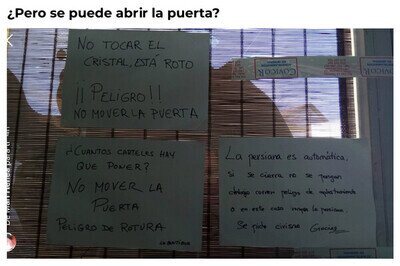 ¿Pero se puede abrir la puerta?
NO TOCAR EL
CRISTAL, ESTÁ ROTO
¡¡PELIGRO!!
NO MOVER LA PUERTA
¿CUANTOS CARTELES HAY
QUE PONER?
NO MOVER LA
PUERTA
PELIGRO DE ROTURA
La persiana es automática,
si se cierra no se pongan
debajo corren peligro de
o en este caso rompa la persiana.
Se pide civismo Gracias
COVICOR